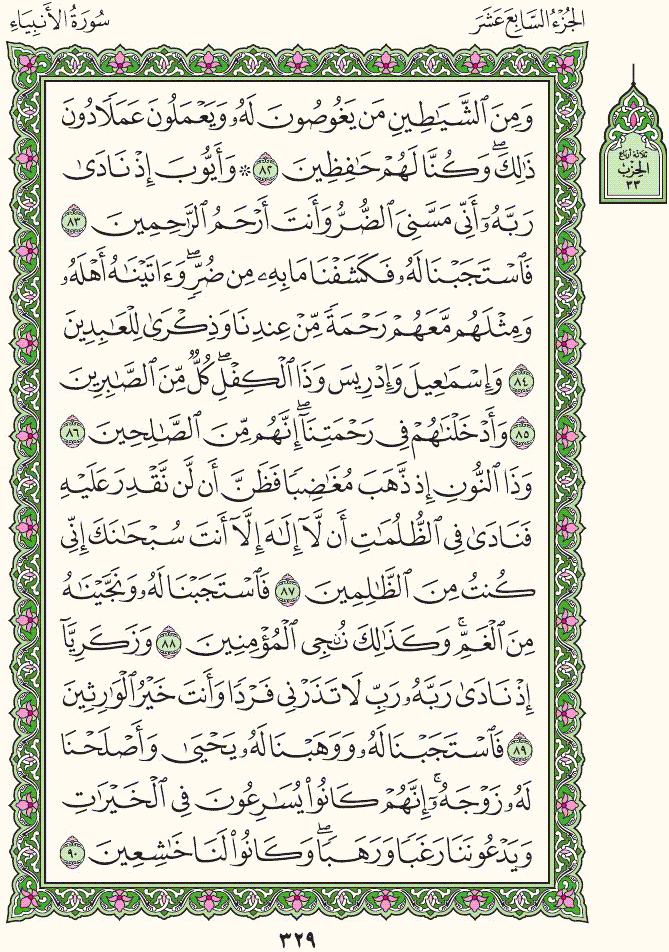 الجُزْءُ السَّابِعَ عَشَرَ
سُورَةُ الأَنبِيَاءِ
وَمِنَ ٱلشَّيَٰطِينِ مَن يَغُوصُونَ لَهُۥ وَيَعْمَلُونَ عَمَلًا دُونَ
ذَٰلِكَۖ وَكُنَّا لَهُمْ حَٰفِظِينَ ٨٢ ۞ وَأَيُّوبَ إِذْ نَادَىٰ
رَبَّهُۥٓ أَنِّي مَسَّنِيَ ٱلضُّرُّ وَأَنتَ أَرْحَمُ ٱلرَّٰحِمِينَ ٨٣
فَٱسْتَجَبْنَا لَهُۥ فَكَشَفْنَا مَا بِهِۦ مِن ضُرٍّۖ وَءَاتَيْنَٰهُ أَهْلَهُۥ
وَمِثْلَهُم مَّعَهُمْ رَحْمَةً مِّنْ عِندِنَا وَذِكْرَىٰ لِلْعَٰبِدِينَ
٨٤ وَإِسْمَٰعِيلَ وَإِدْرِيسَ وَذَا ٱلْكِفْلِۖ كُلٌّ مِّنَ ٱلصَّٰبِرِينَ
٨٥ وَأَدْخَلْنَٰهُمْ فِي رَحْمَتِنَآۖ إِنَّهُم مِّنَ ٱلصَّٰلِحِينَ ٨٦
وَذَا ٱلنُّونِ إِذ ذَّهَبَ مُغَٰضِبًا فَظَنَّ أَن لَّن نَّقْدِرَ عَلَيْهِ
فَنَادَىٰ فِي ٱلظُّلُمَٰتِ أَن لَّآ إِلَٰهَ إِلَّآ أَنتَ سُبْحَٰنَكَ إِنِّي
كُنتُ مِنَ ٱلظَّٰلِمِينَ ٨٧ فَٱسْتَجَبْنَا لَهُۥ وَنَجَّيْنَٰهُ
مِنَ ٱلْغَمِّۚ وَكَذَٰلِكَ نُۨجِي ٱلْمُؤْمِنِينَ ٨٨ وَزَكَرِيَّآ
إِذْ نَادَىٰ رَبَّهُۥ رَبِّ لَا تَذَرْنِي فَرْدًا وَأَنتَ خَيْرُ ٱلْوَٰرِثِينَ
٨٩ فَٱسْتَجَبْنَا لَهُۥ وَوَهَبْنَا لَهُۥ يَحْيَىٰ وَأَصْلَحْنَا
لَهُۥ زَوْجَهُۥٓۚ إِنَّهُمْ كَانُوا۟ يُسَٰرِعُونَ فِي ٱلْخَيْرَٰتِ
وَيَدْعُونَنَا رَغَبًا وَرَهَبًاۖ وَكَانُوا۟ لَنَا خَٰشِعِينَ ٩٠
ثَلَاثَةُ أَرْبَاعِ
الْحِزْبُ
٣٣
٣٢٩